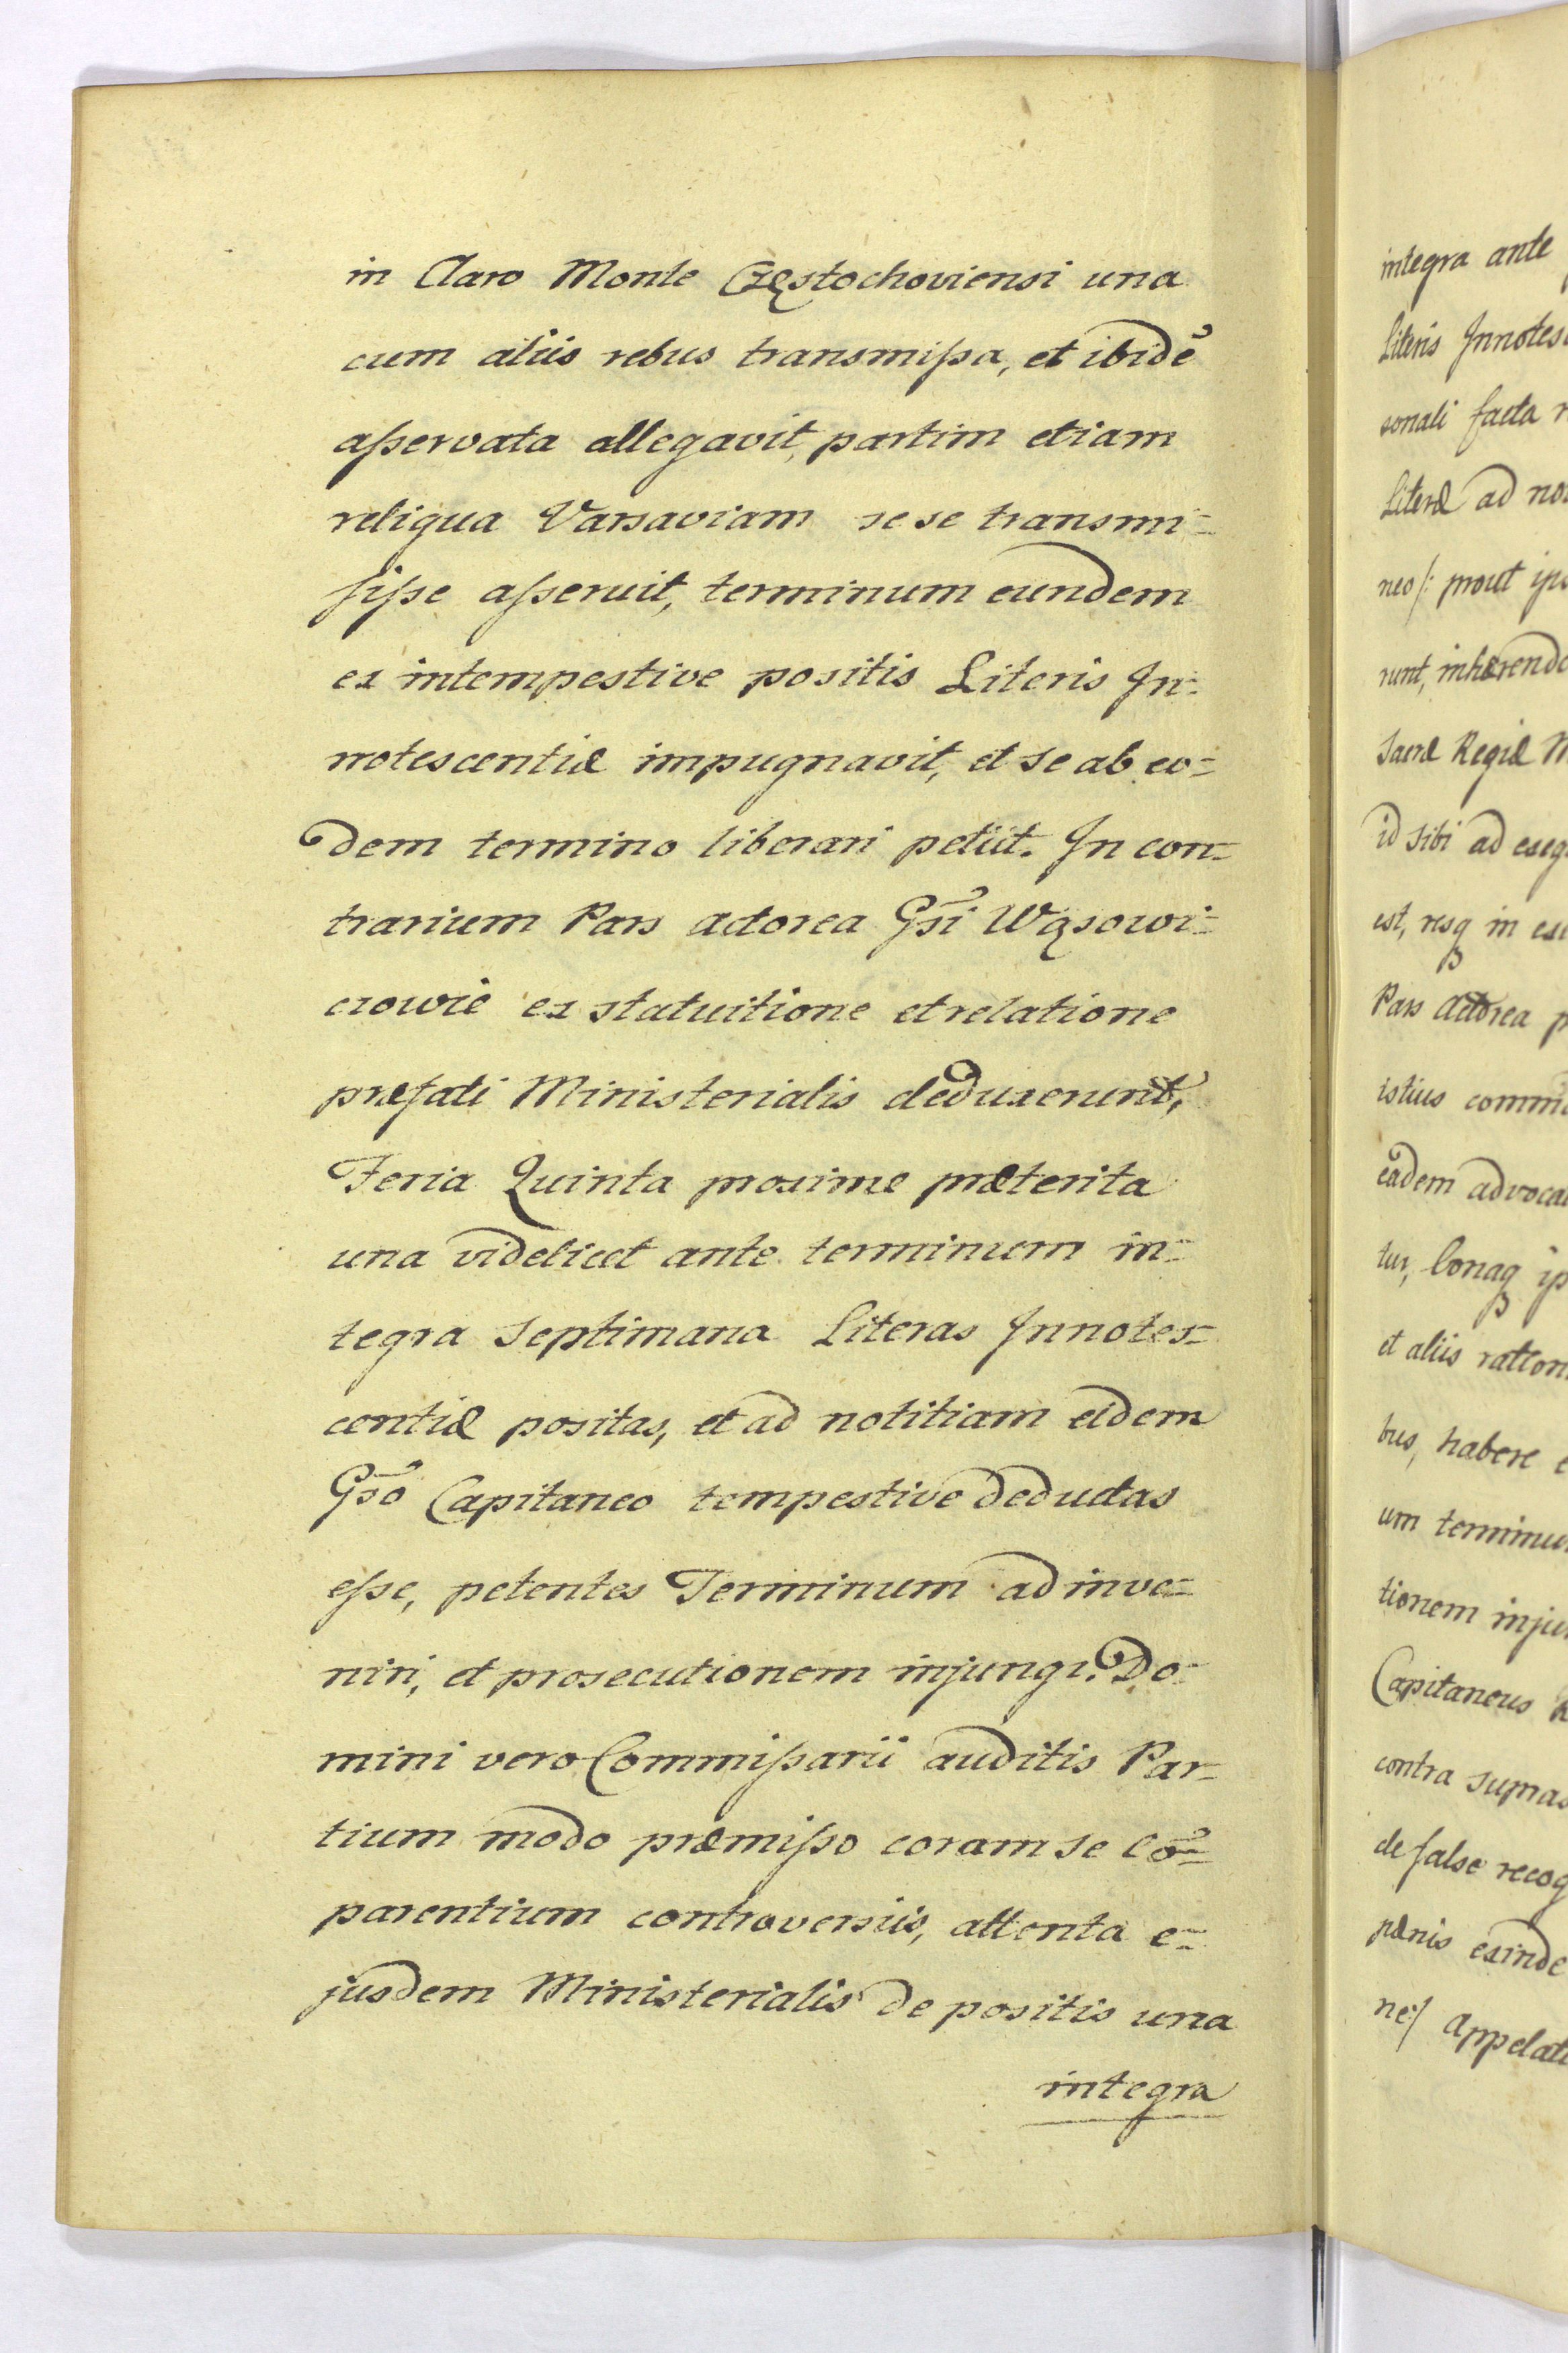 in Claro Monte Częstochoviensi una
cum aliis rebus transmiſsa, et ibidē
aſservata allegavit, partim etiam
reliqua Varsaviam sese transmi=
ſiſse aſseruit, terminum eundem
ex intempestive positis Literis In=
notescentiæ impugnavit, et se ab eo=
dem termino liberari petiit. In con=
trarium Pars actorea Gs̃i Wąsowi=
czowie ex statuitione et relatione
præfati Ministerialis deduxerunt,
Feria Quinta proxime præterita
una videlicet ante terminum in=
tegra Septimana Literas Innotes=
centiæ positas, et ad notitiam eidem
Gs̃o Capitaneo tempestive deductas
eſse, petentes Terminum ad inve=
niri, et prosecutionem injungi. Do=
mini vero Commiſsarii auditis Par=
tium modo præmiſso coram se cõ=
parentium controversiis, attenta e=
jusdem Ministerialis de positis una
integra
integra ante
Literis Innotes
sonali facta
Literæ ad no
neo/: prout ips
runt, inhærendo
Sacræ Regiæ M
id sibi ad exeq
est, resq in ex
Pars Actorea p
istius commi
eadem advoca
tur, bonaq ip
et aliis ration
bus, habere e
um terminum
tionem inju
Capitaneus
contra supra
de false recog
pænis exinde
ne:/ Appelati